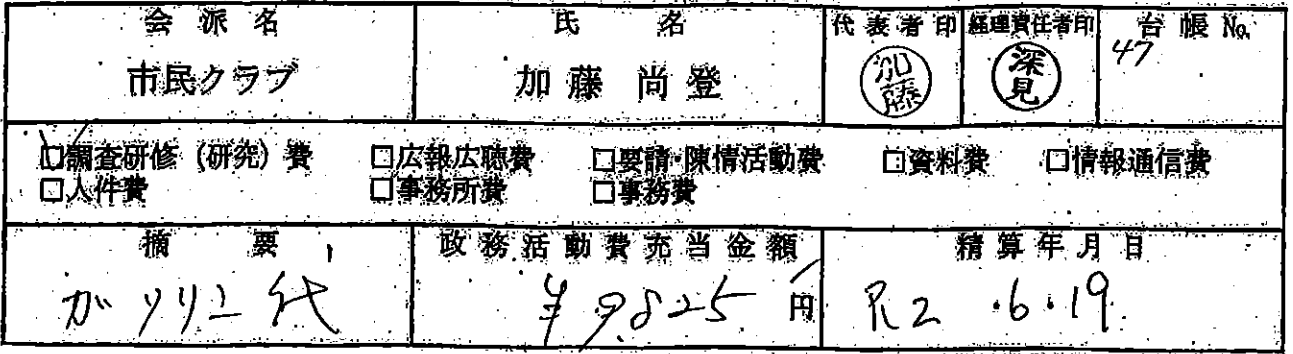 会派名 氏名 代表者印 経理責任者印 台帳No.
市民クラブ 加藤尚登 加藤 深見 47
☑調査研修(研究)費 □広報広聴費 □要請・陳情活動費 □資料費 □情報通信費
□人件費 □事務所費 □事務費
摘要 政務活動費充当金額 精算年月日
ガソリン代 ¥9,825円 R2.6.19.